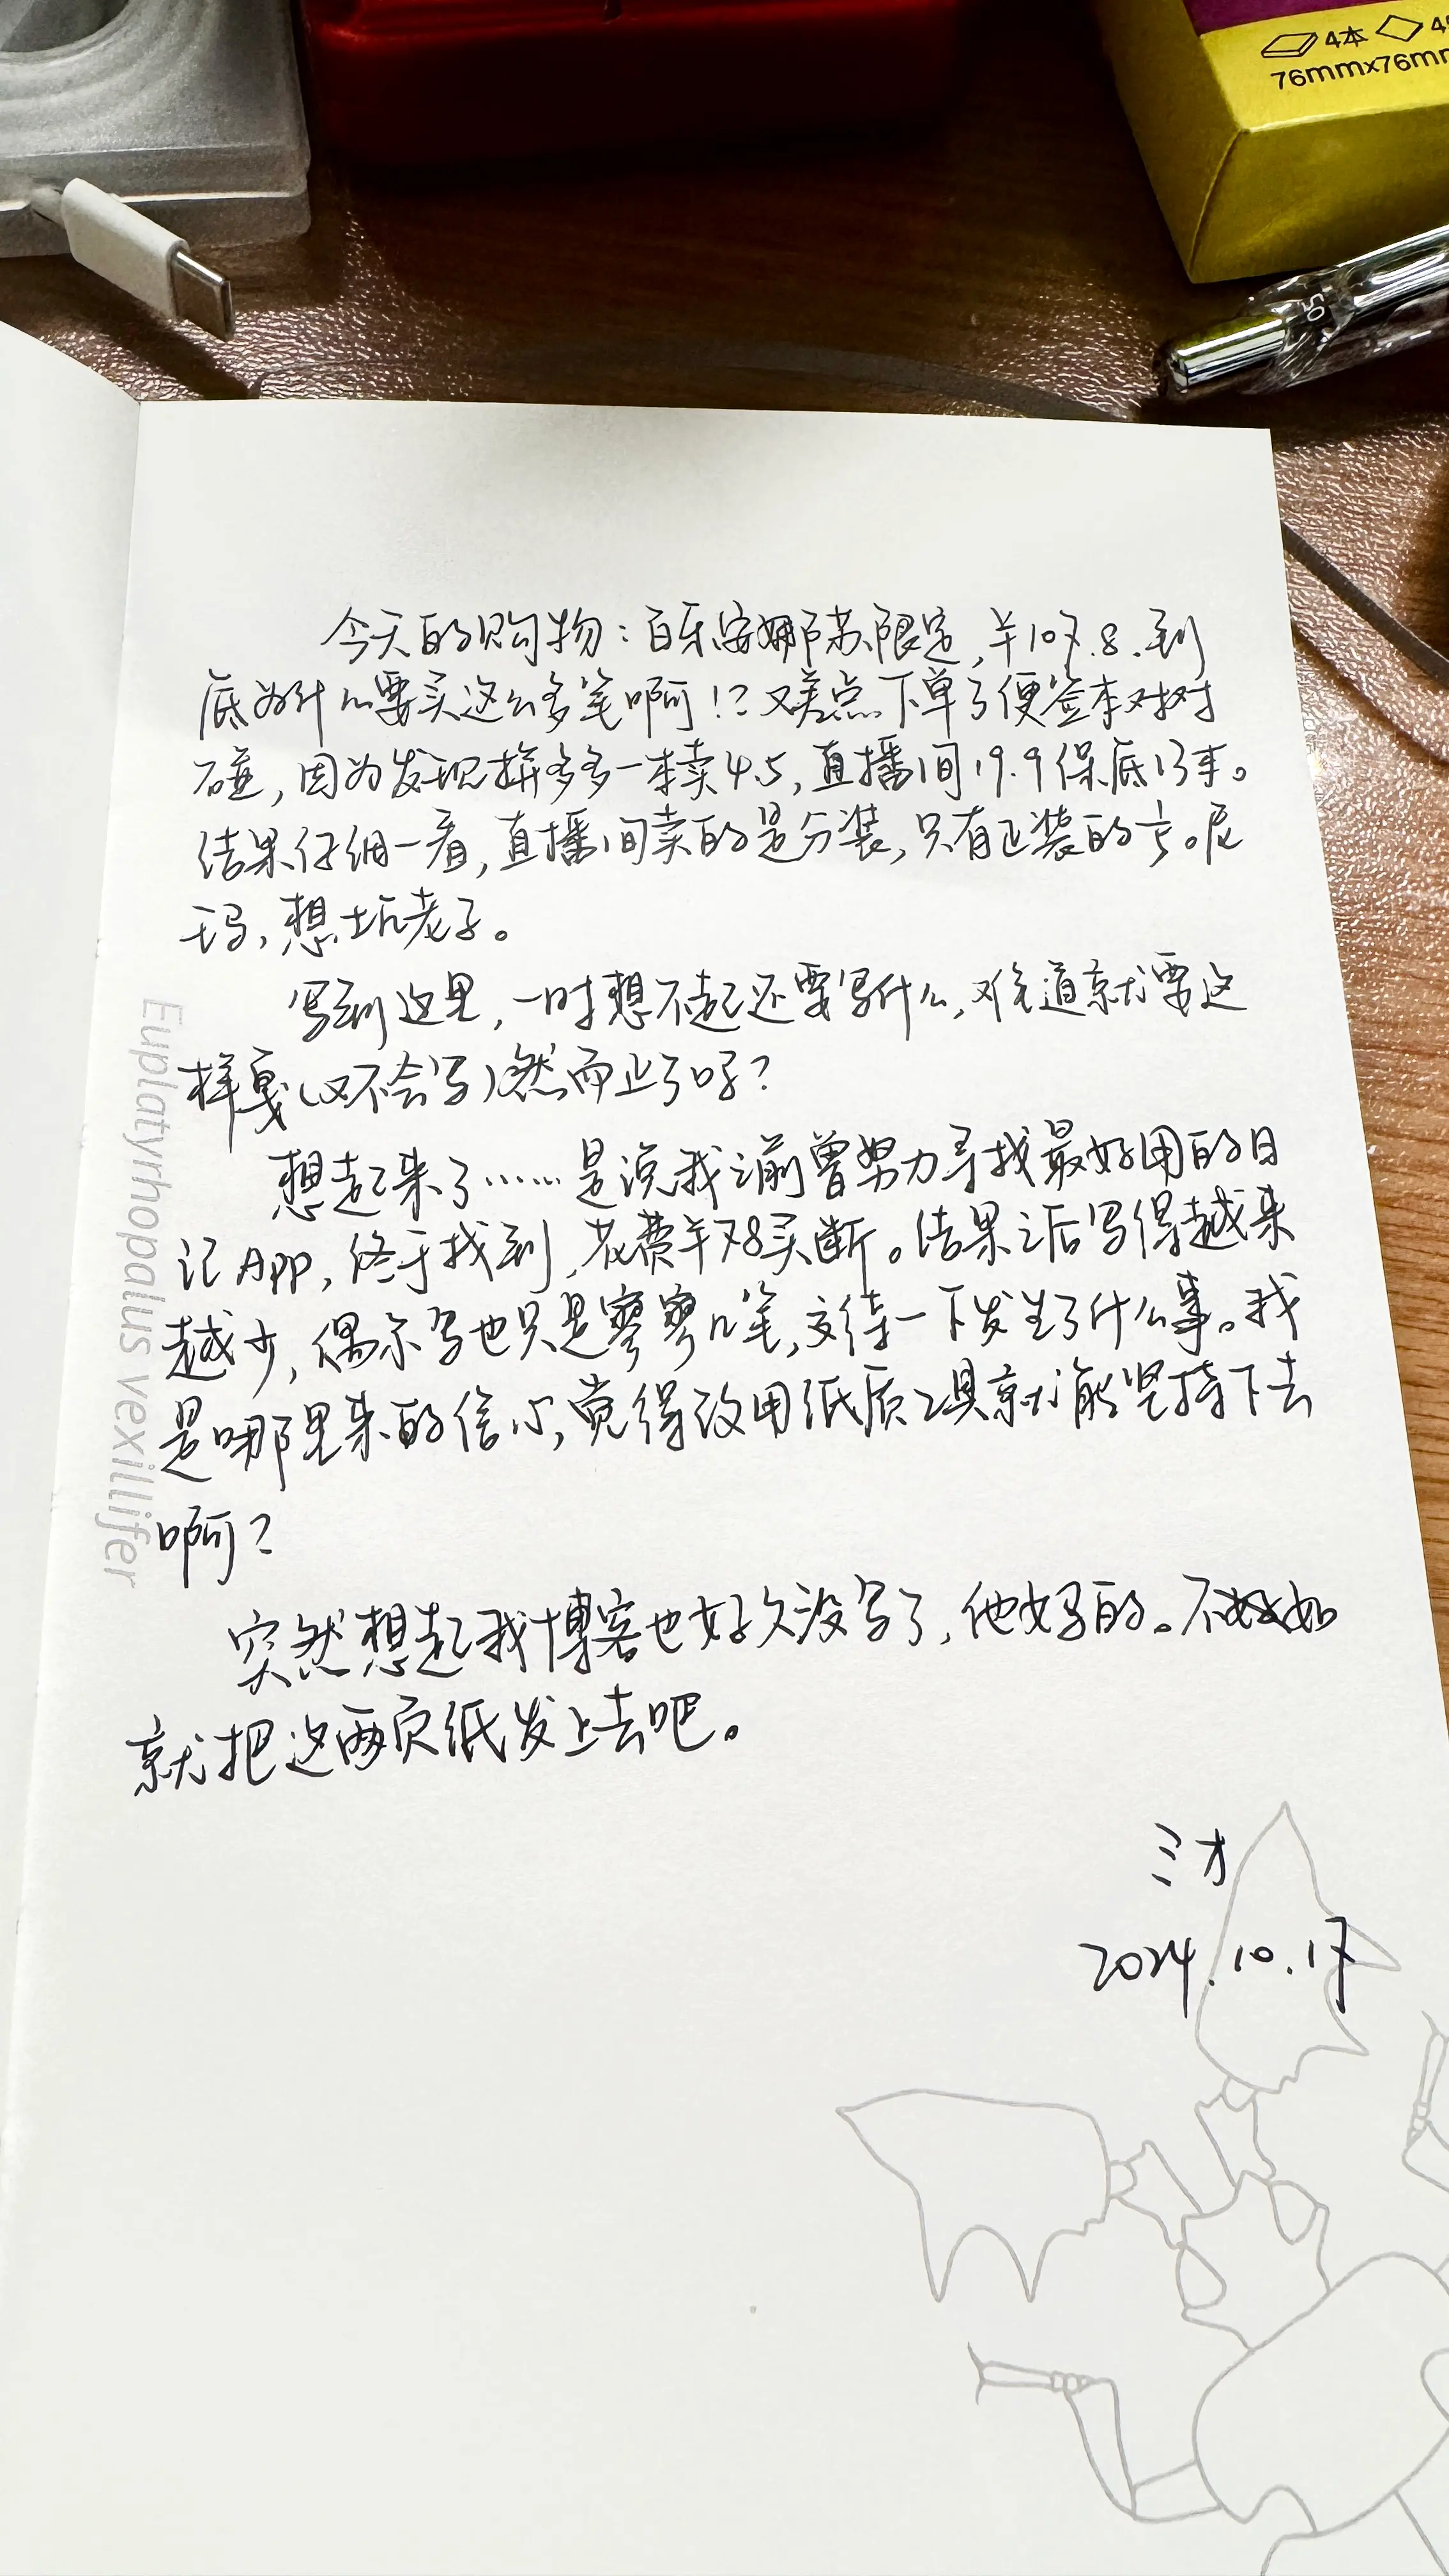 4本 4
76mmx76mm
50
今天的购物:百乐安娜苏限定,羊107.8.到
底为什么要买这么多笔啊!?又差点下单了便签本对对
碰,因为发现拼多多一本卖4.5,直播间19.9保底13本。
结果仔细一看,直播间卖的是分装,只有正装的⅓。尼
玛,想坑老子。
写到这里,一时想不起还要写什么,难道就要这
样戛(又不会写)然而止了吗?
想起来了……是说我之前曾努力寻找最好用的日
记APP,终于找到,花费羊78买断。结果之后写得越来
越少,偶尔写也只是寥寥几笔,交待一下发生了什么事。我
是哪里来的信心,觉得改用纸质工具就能坚持下去
啊?
突然想起我博客也好久没写了,他妈的。不如
就把这两页纸发上去吧。
三才
2024.10.17
Euplatyrhopalus vexillifer